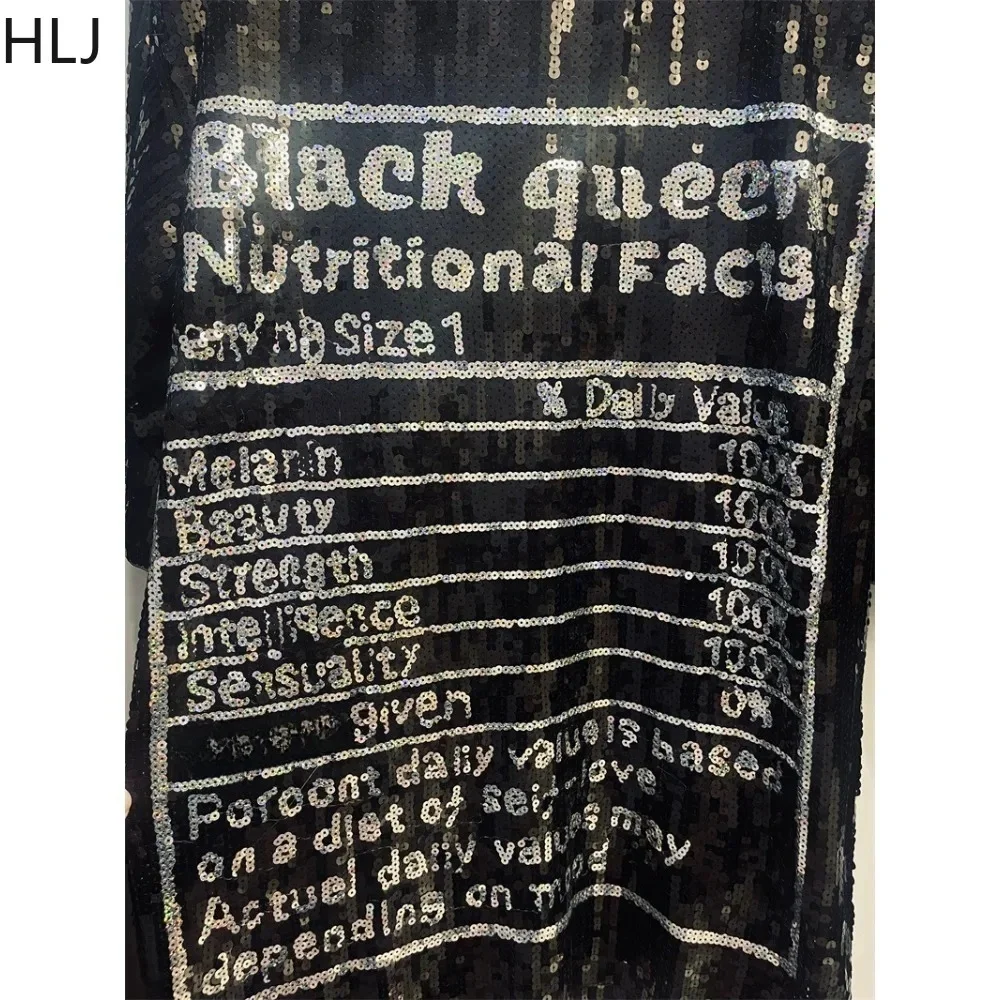 HLJ
Black queen
Nutritional Facts
Size 1
% Daily Value
Melanin 100%
Beauty 100%
Strength 100%
Intelligence 100%
Sensuality 100%
given 0%
Percent daily value is based
on a diet of self-love
Actual daily values may
depending on